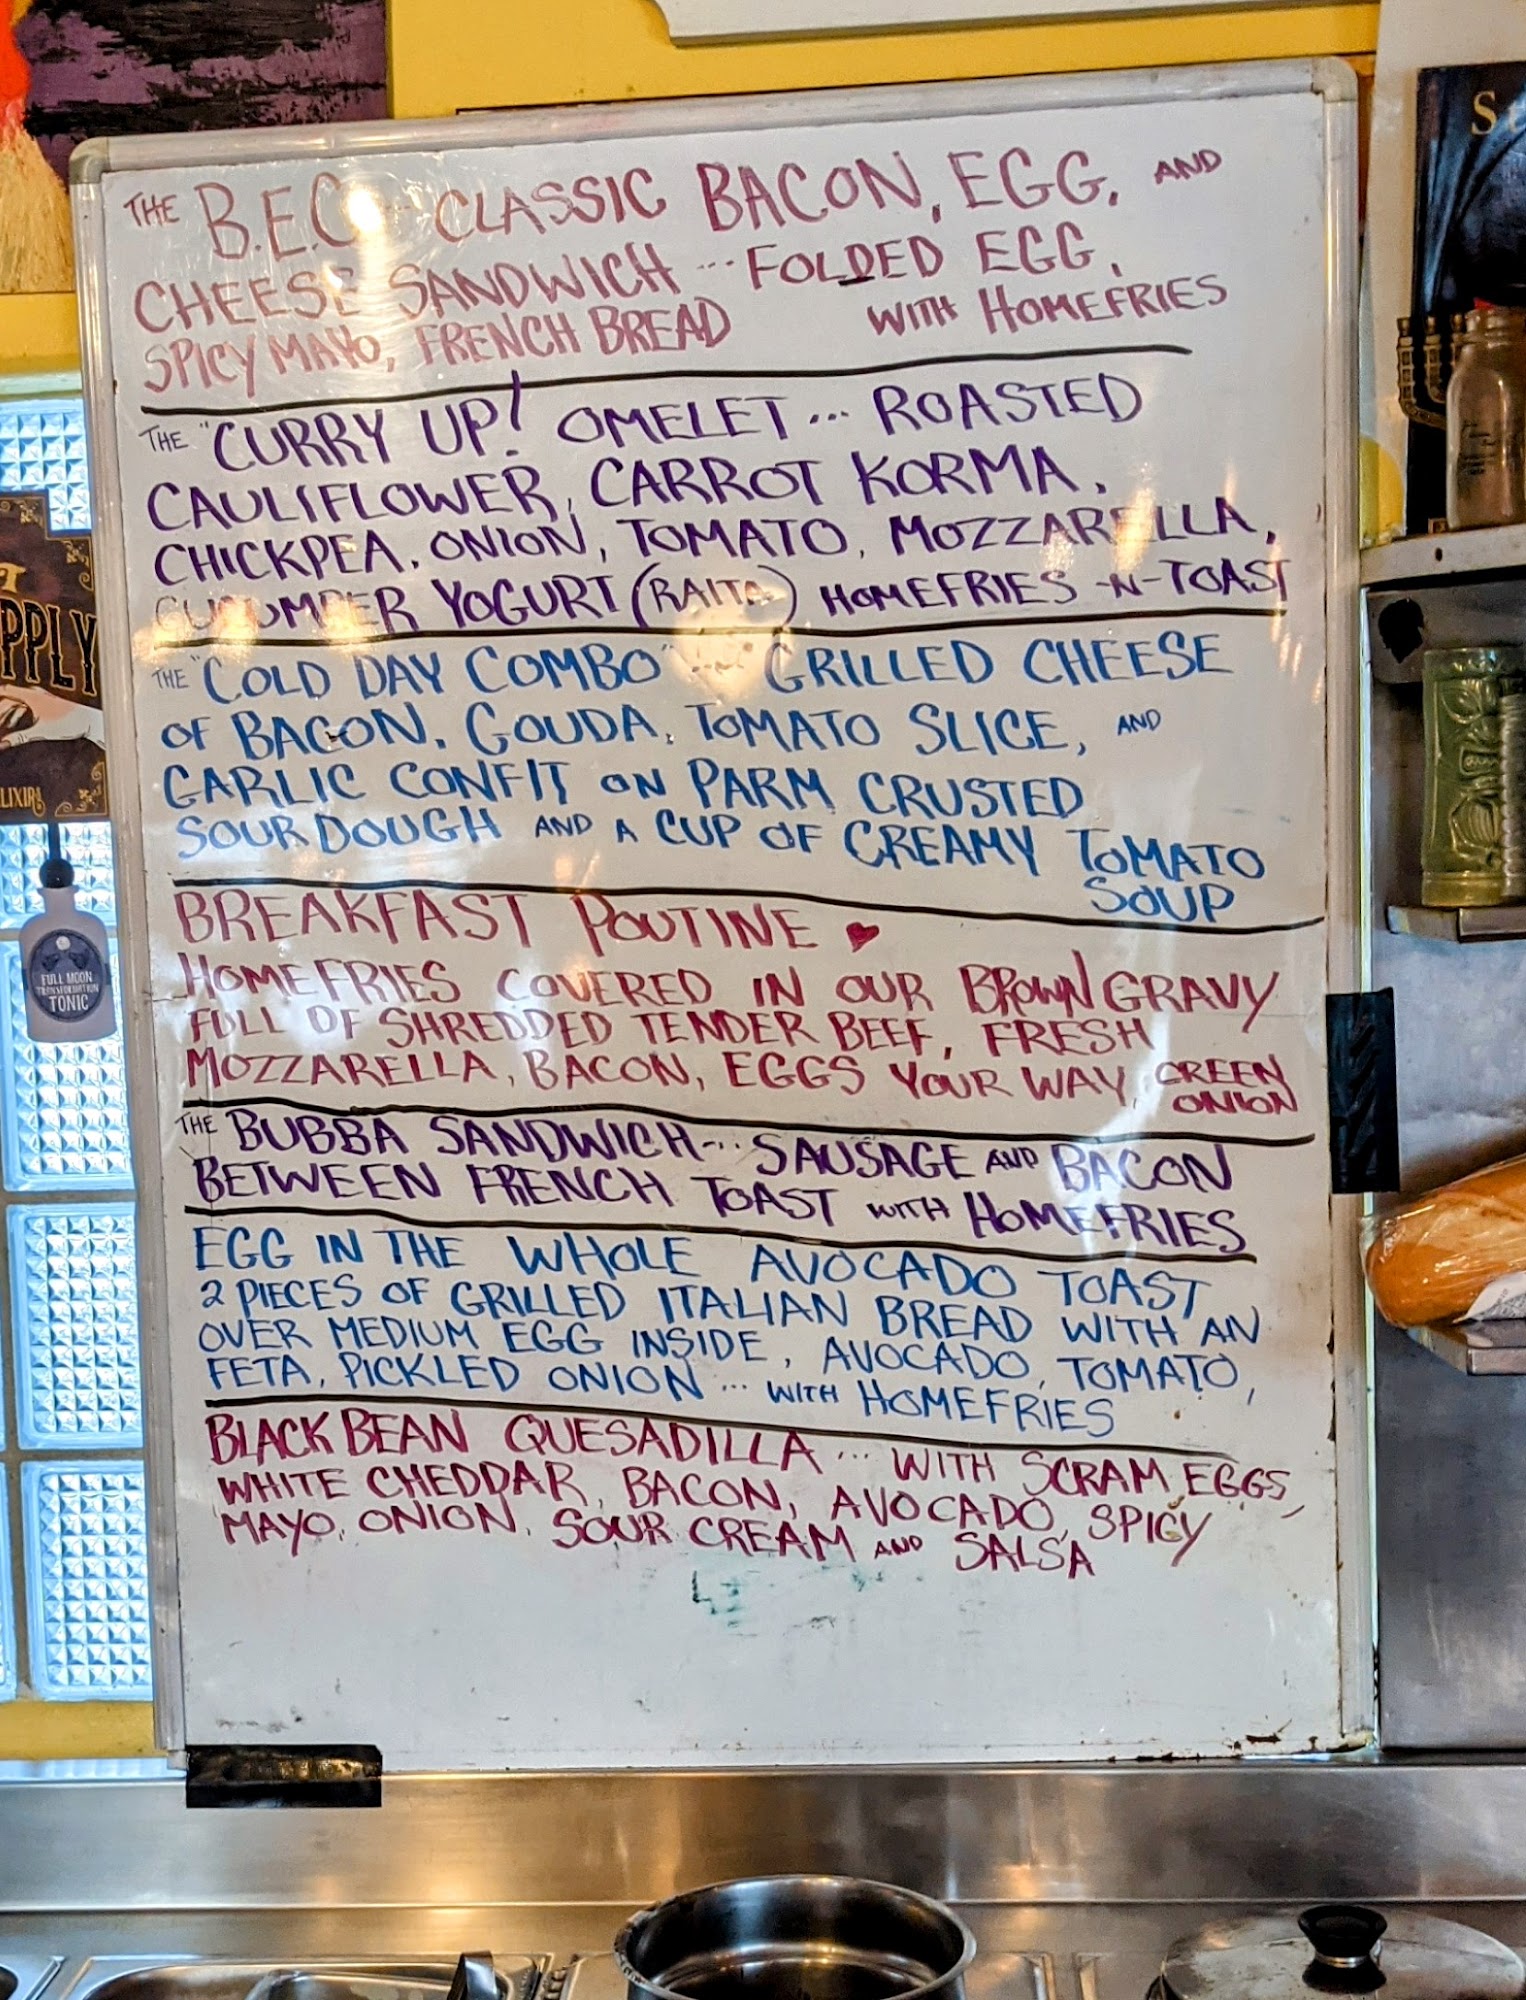 THE B.E.C. ... CLASSIC BACON, EGG, AND
CHEESE SANDWICH ... FOLDED EGG,
SPICY MAYO, FRENCH BREAD WITH HOMEFRIES
THE "CURRY UP! OMELET ... ROASTED
CAULIFLOWER, CARROT KORMA,
CHICKPEA, ONION, TOMATO, MOZZARELLA,
CUCUMBER YOGURT (RAITA) HOMEFRIES -N- TOAST
THE "COLD DAY COMBO" ... GRILLED CHEESE
OF BACON, GOUDA, TOMATO SLICE, AND
GARLIC CONFIT ON PARM CRUSTED
SOURDOUGH AND A CUP OF CREAMY TOMATO
SOUP
BREAKFAST POUTINE ♥
HOMEFRIES COVERED IN OUR BROWN GRAVY
FULL OF SHREDDED TENDER BEEF, FRESH
MOZZARELLA, BACON, EGGS YOUR WAY, GREEN
ONION
THE BUBBA SANDWICH ... SAUSAGE AND BACON
BETWEEN FRENCH TOAST WITH HOMEFRIES
EGG IN THE WHOLE AVOCADO TOAST
2 PIECES OF GRILLED ITALIAN BREAD WITH AN
OVER MEDIUM EGG INSIDE, AVOCADO, TOMATO,
FETA, PICKLED ONION ... WITH HOMEFRIES
BLACK BEAN QUESADILLA ... WITH SCRAM EGGS,
WHITE CHEDDAR, BACON, AVOCADO, SPICY
MAYO, ONION, SOUR CREAM AND SALSA
PPLY
LIXIR
FULL MOON
TRANSFORMATION
TONIC